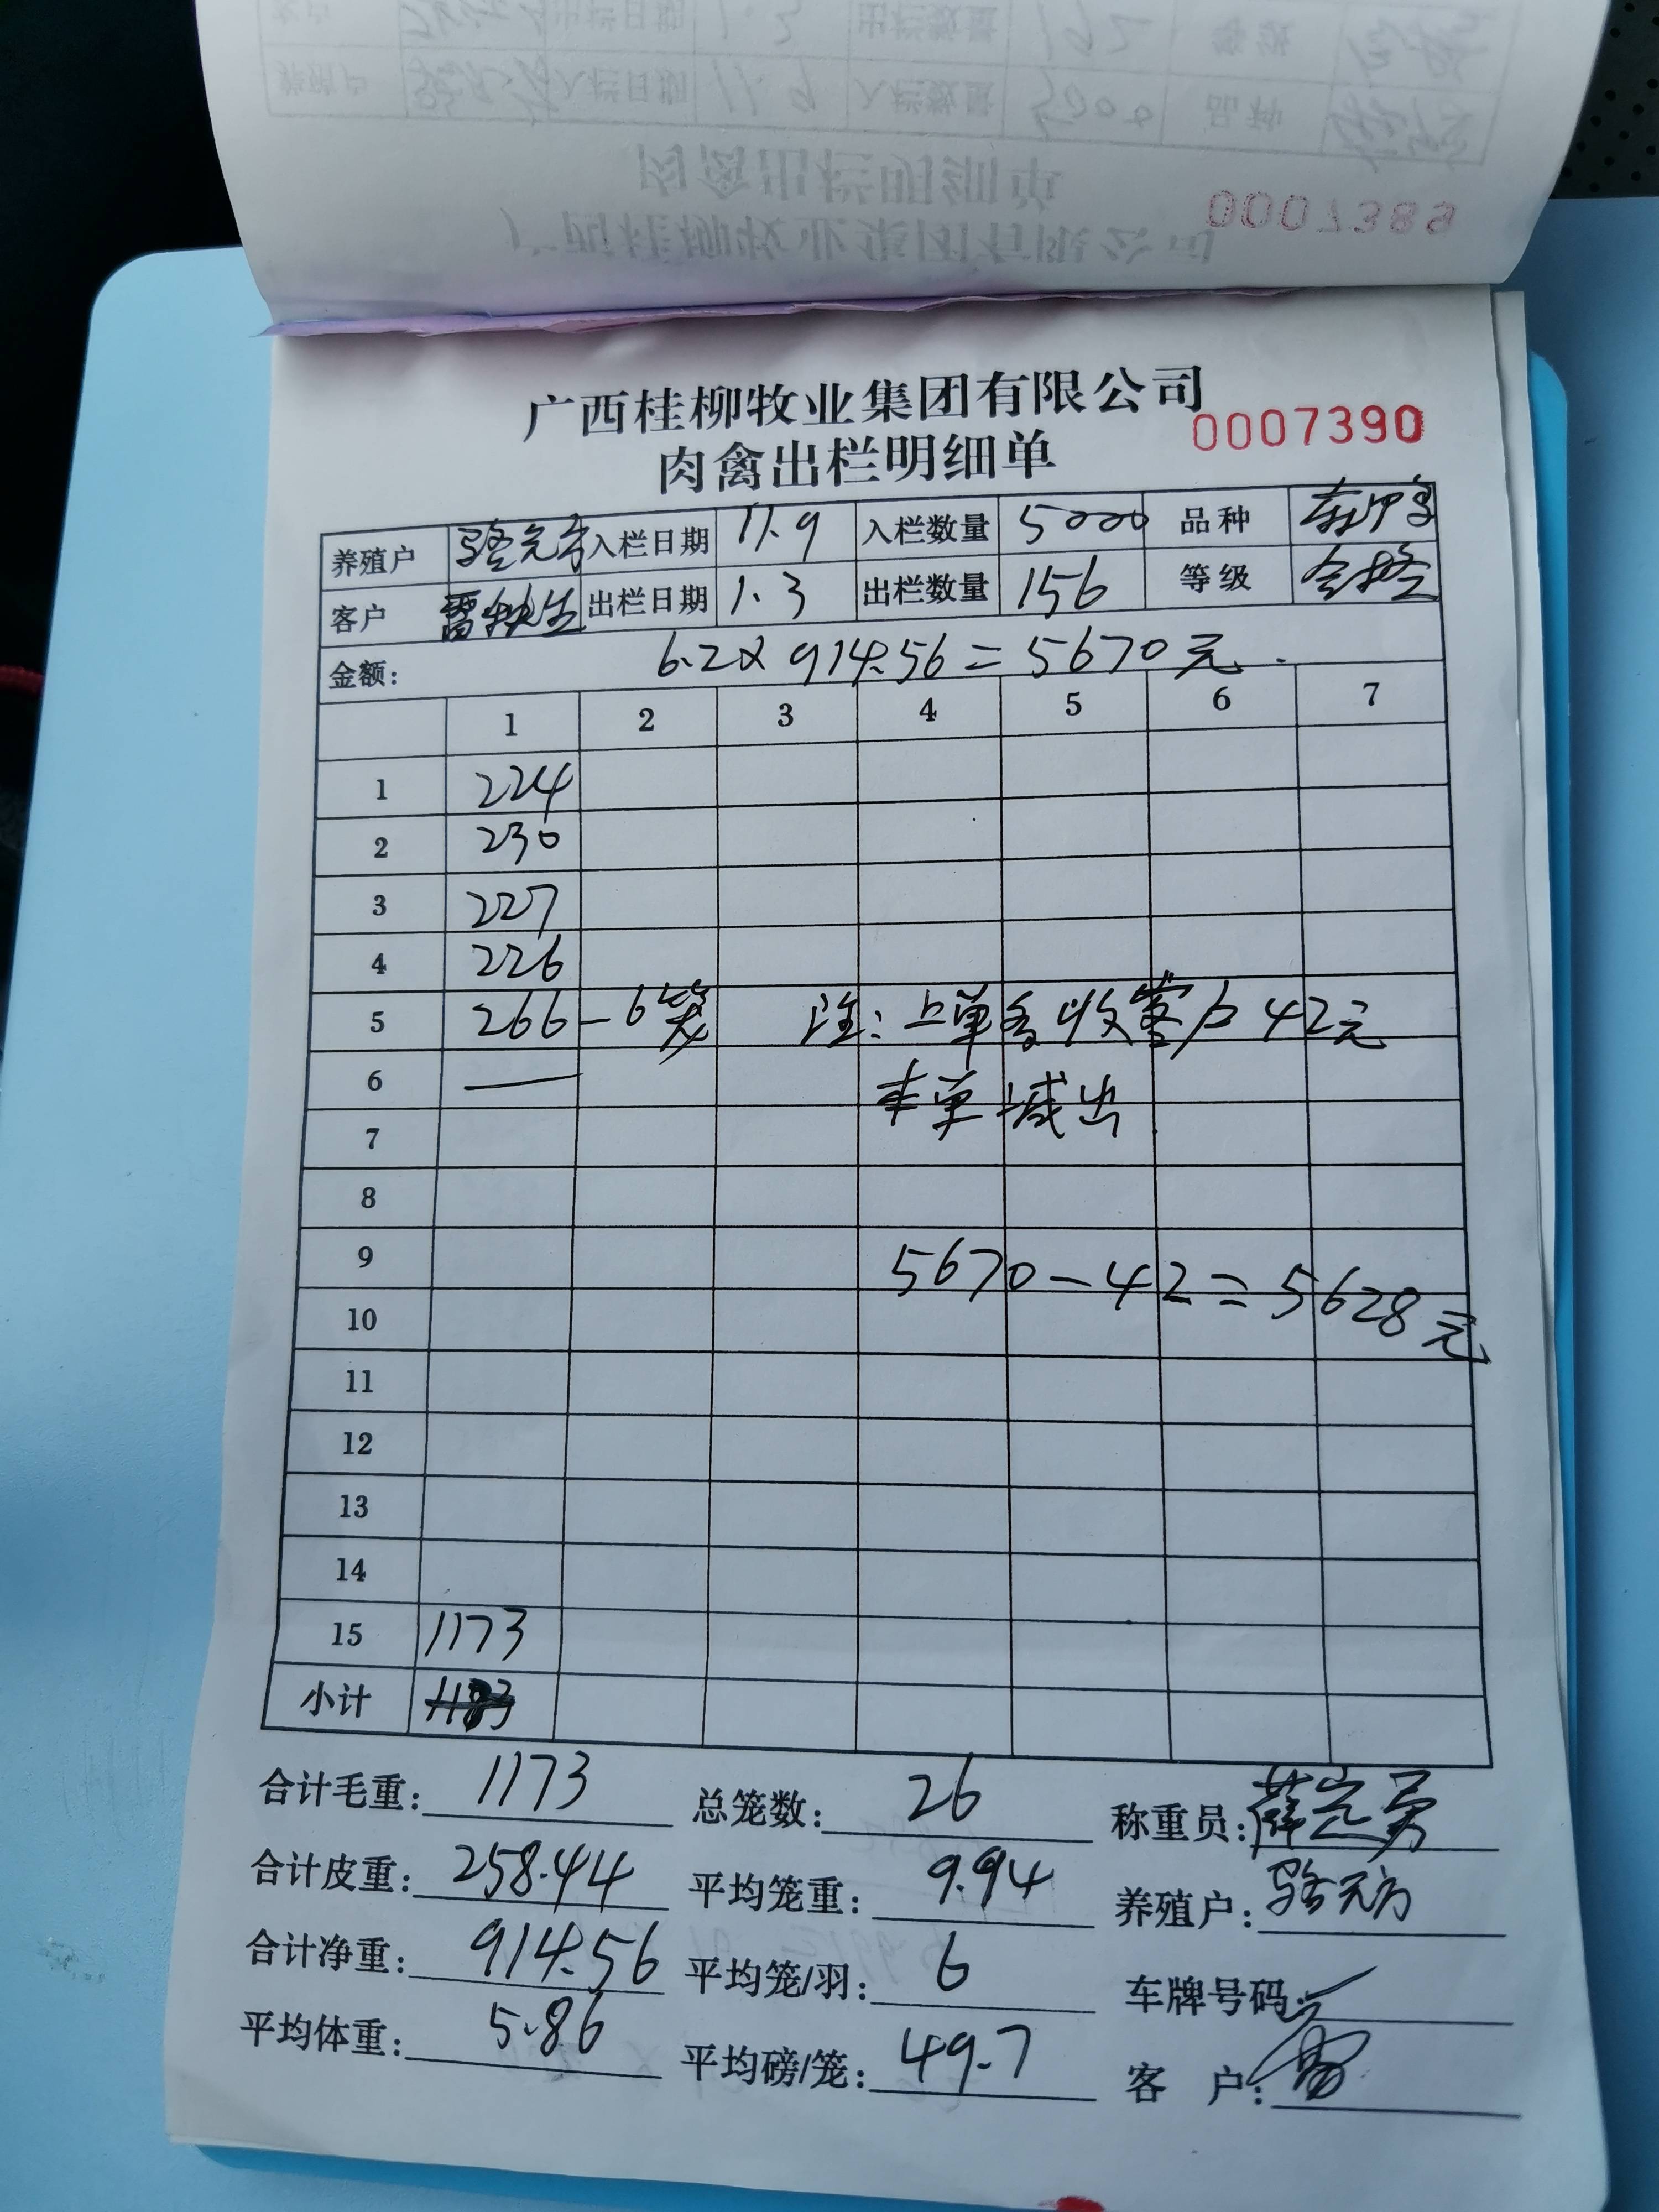 0007389
广西桂柳牧业集团有限公司
0007390
肉禽出栏明细单
养殖户 骆元方 入栏日期 11.9 入栏数量 5000 品种
客户 雷 生 出栏日期 1.3 出栏数量 156 等级
金额: 6.2×914.56=5670元.
1 2 3 4 5 6 7
1 224
2 230
3 227
4 226
5 266-6笼 注:上单多收客户42元
6 — 本单减出
7
8
9 5670-42=5628元
10
11
12
13
14
15 1173
小计
合计毛重: 1173 总笼数: 26 称重员: 薛定勇
合计皮重: 258.44 平均笼重: 9.94 养殖户: 骆元方
合计净重: 914.56 平均笼/羽: 6 车牌号码:
平均体重: 5.86 平均磅/笼: 49.7 客 户: 雷